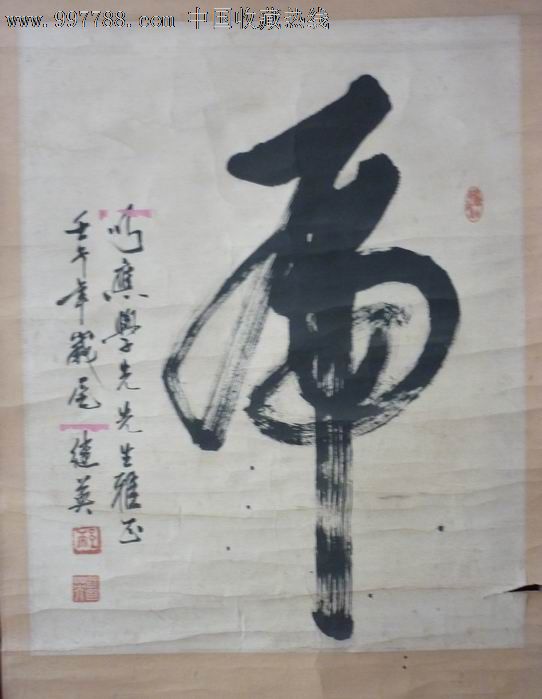 www.997788.com 中国收藏热线
虎
應學先先生雅正
壬午年歲尾
建英